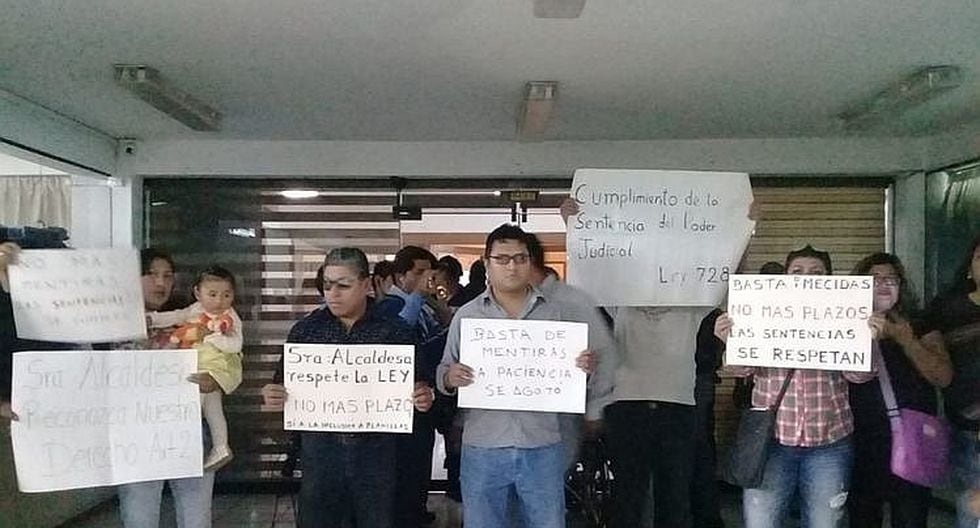 NO MAS
MENTIRAS
LAS SENTENCIAS
SE CUMPLEN
Sra Alcaldesa
Reconozca Nuestro
Derecho Art 2
Sra: ALcaldesa
respete la LEY
NO MAS PLAZO
SI A LA INCLUSION A PLANILLAS
BASTA DE
MENTIRAS
LA PACIENCIA
SE AGOTO
Cumplimiento de la
Sentencia del Poder
Judicial
Ley 728
BASTA DE MECIDAS
NO MAS PLAZOS
LAS SENTENCIAS
SE RESPETAN